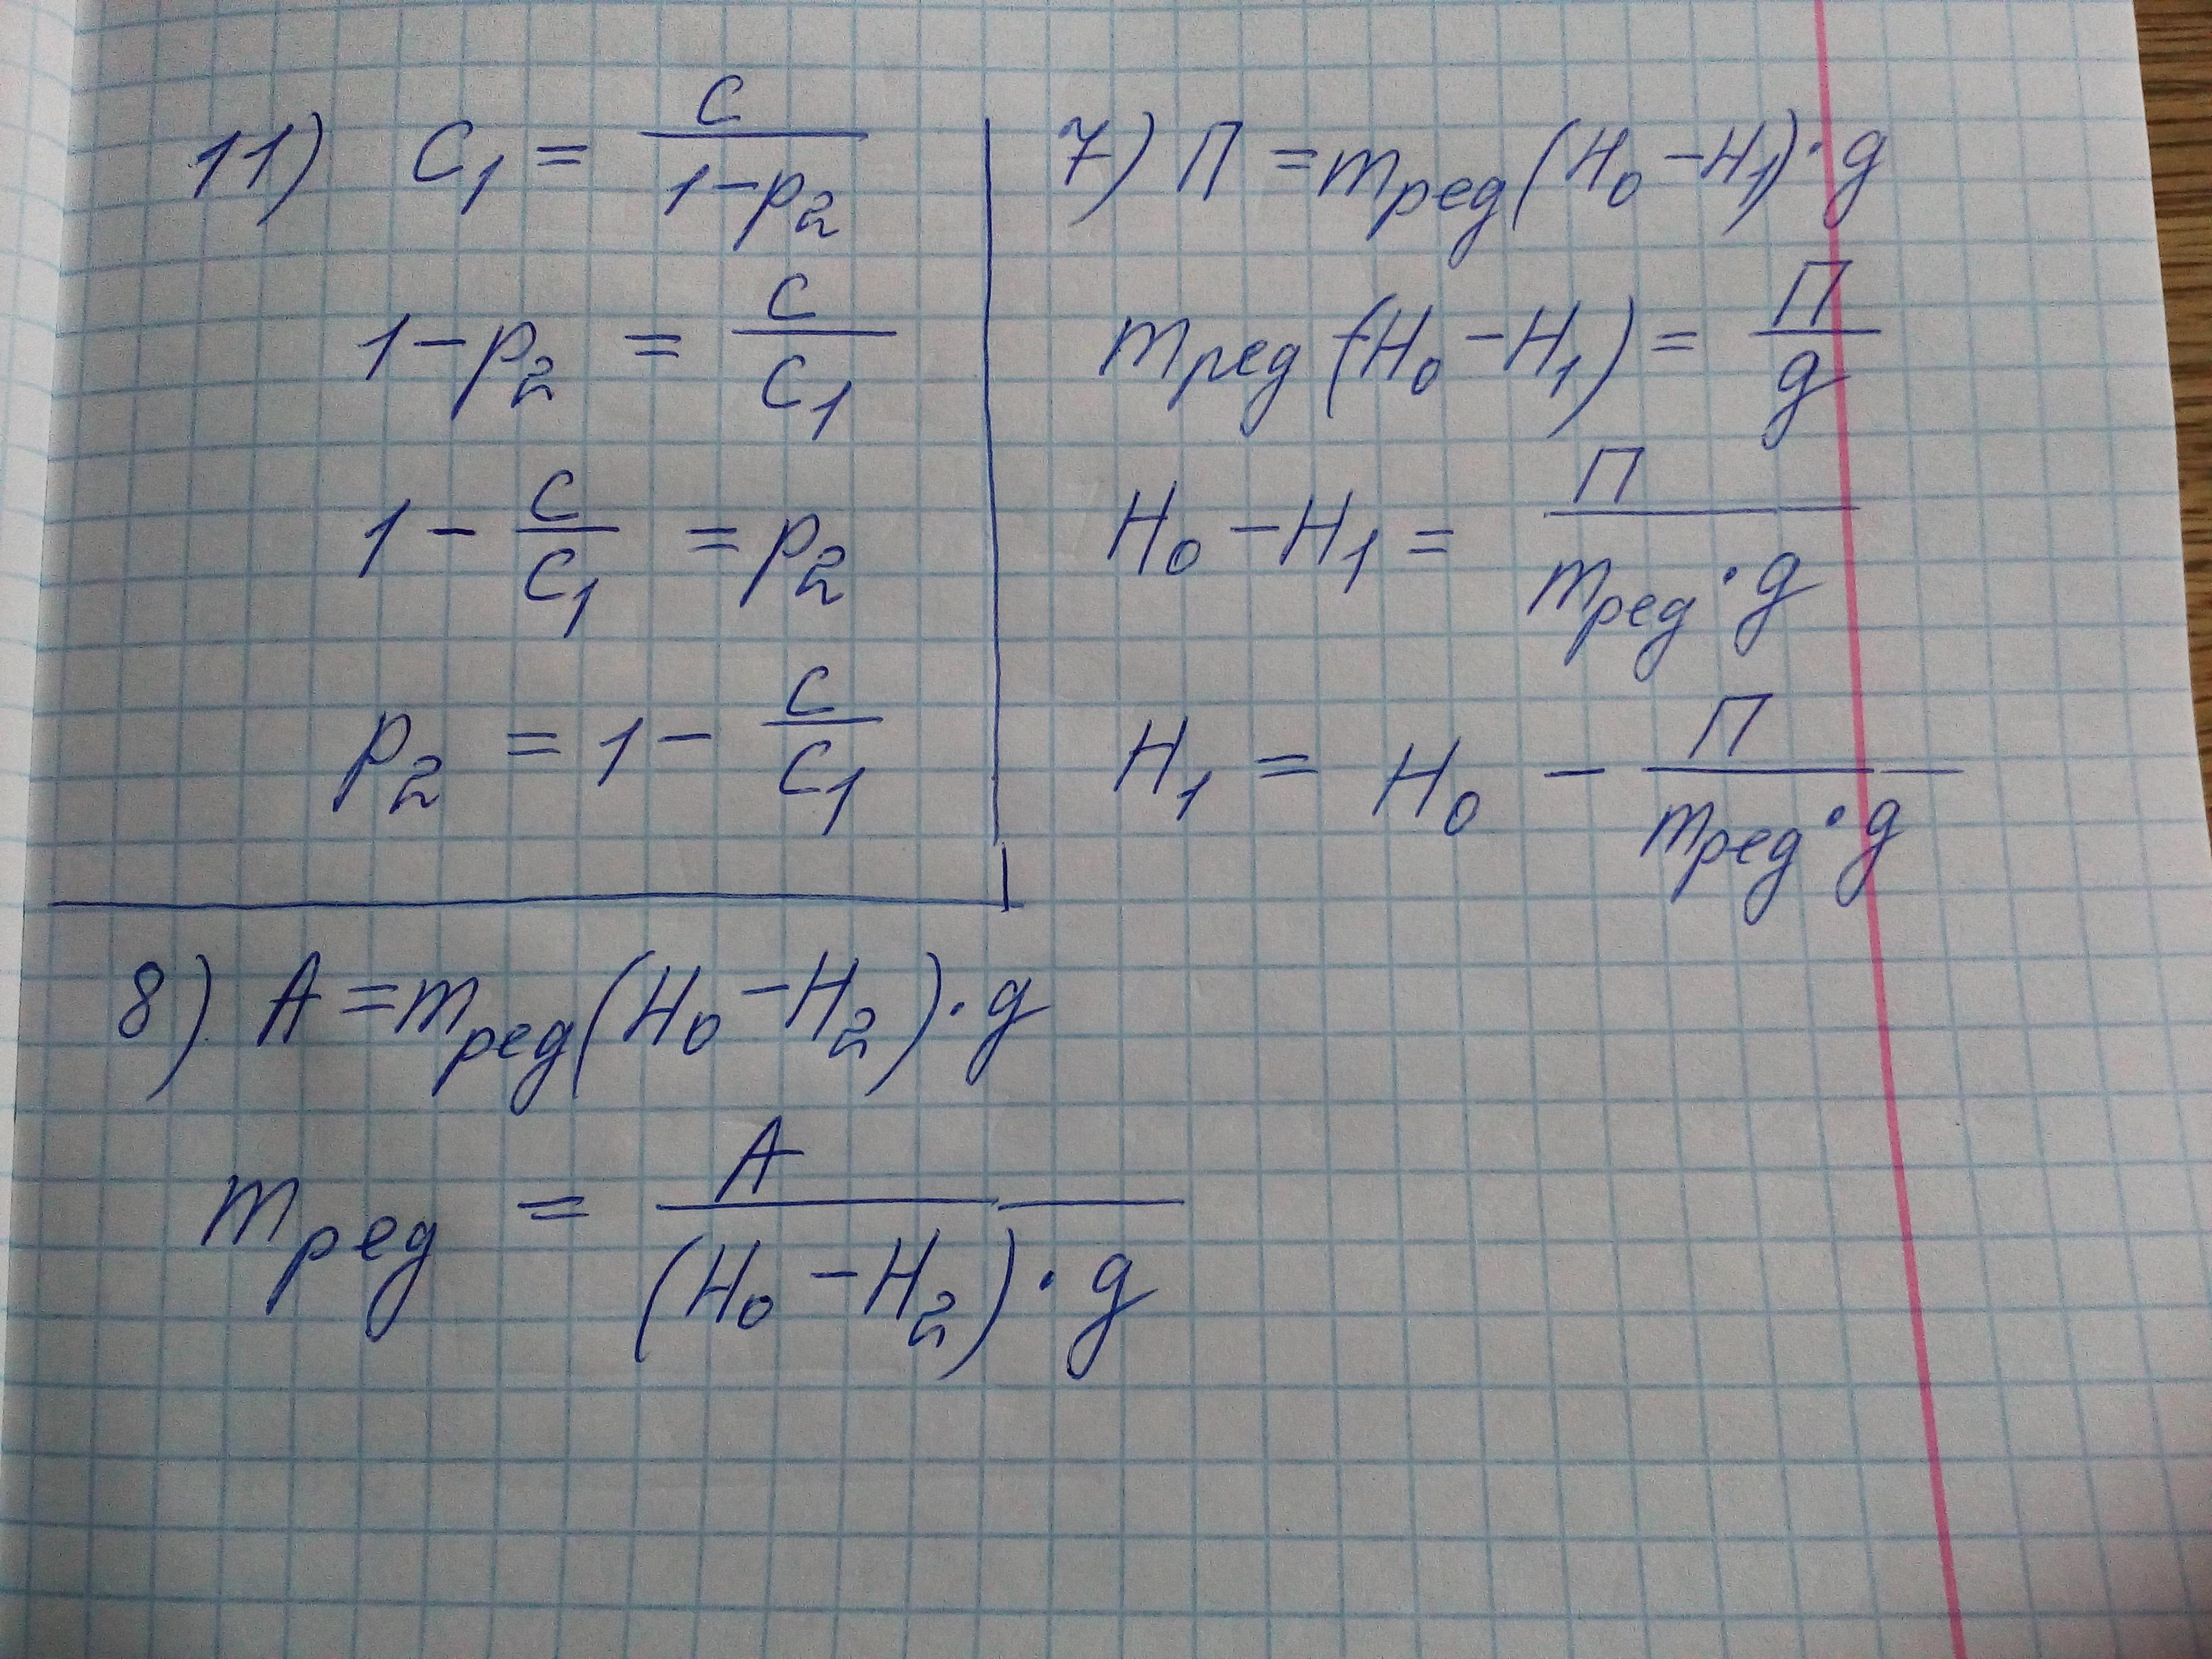 11) C₁ = C / (1 - p₂)
1 - p₂ = C / C₁
1 - C / C₁ = p₂
p₂ = 1 - C / C₁
7) П = mред(H₀ - H₁) · g
mред(H₀ - H₁) = П / g
H₀ - H₁ = П / (mред · g)
H₁ = H₀ - П / (mред · g)
8) A = mред(H₀ - H₂) · g
mред = A / ((H₀ - H₂) · g)